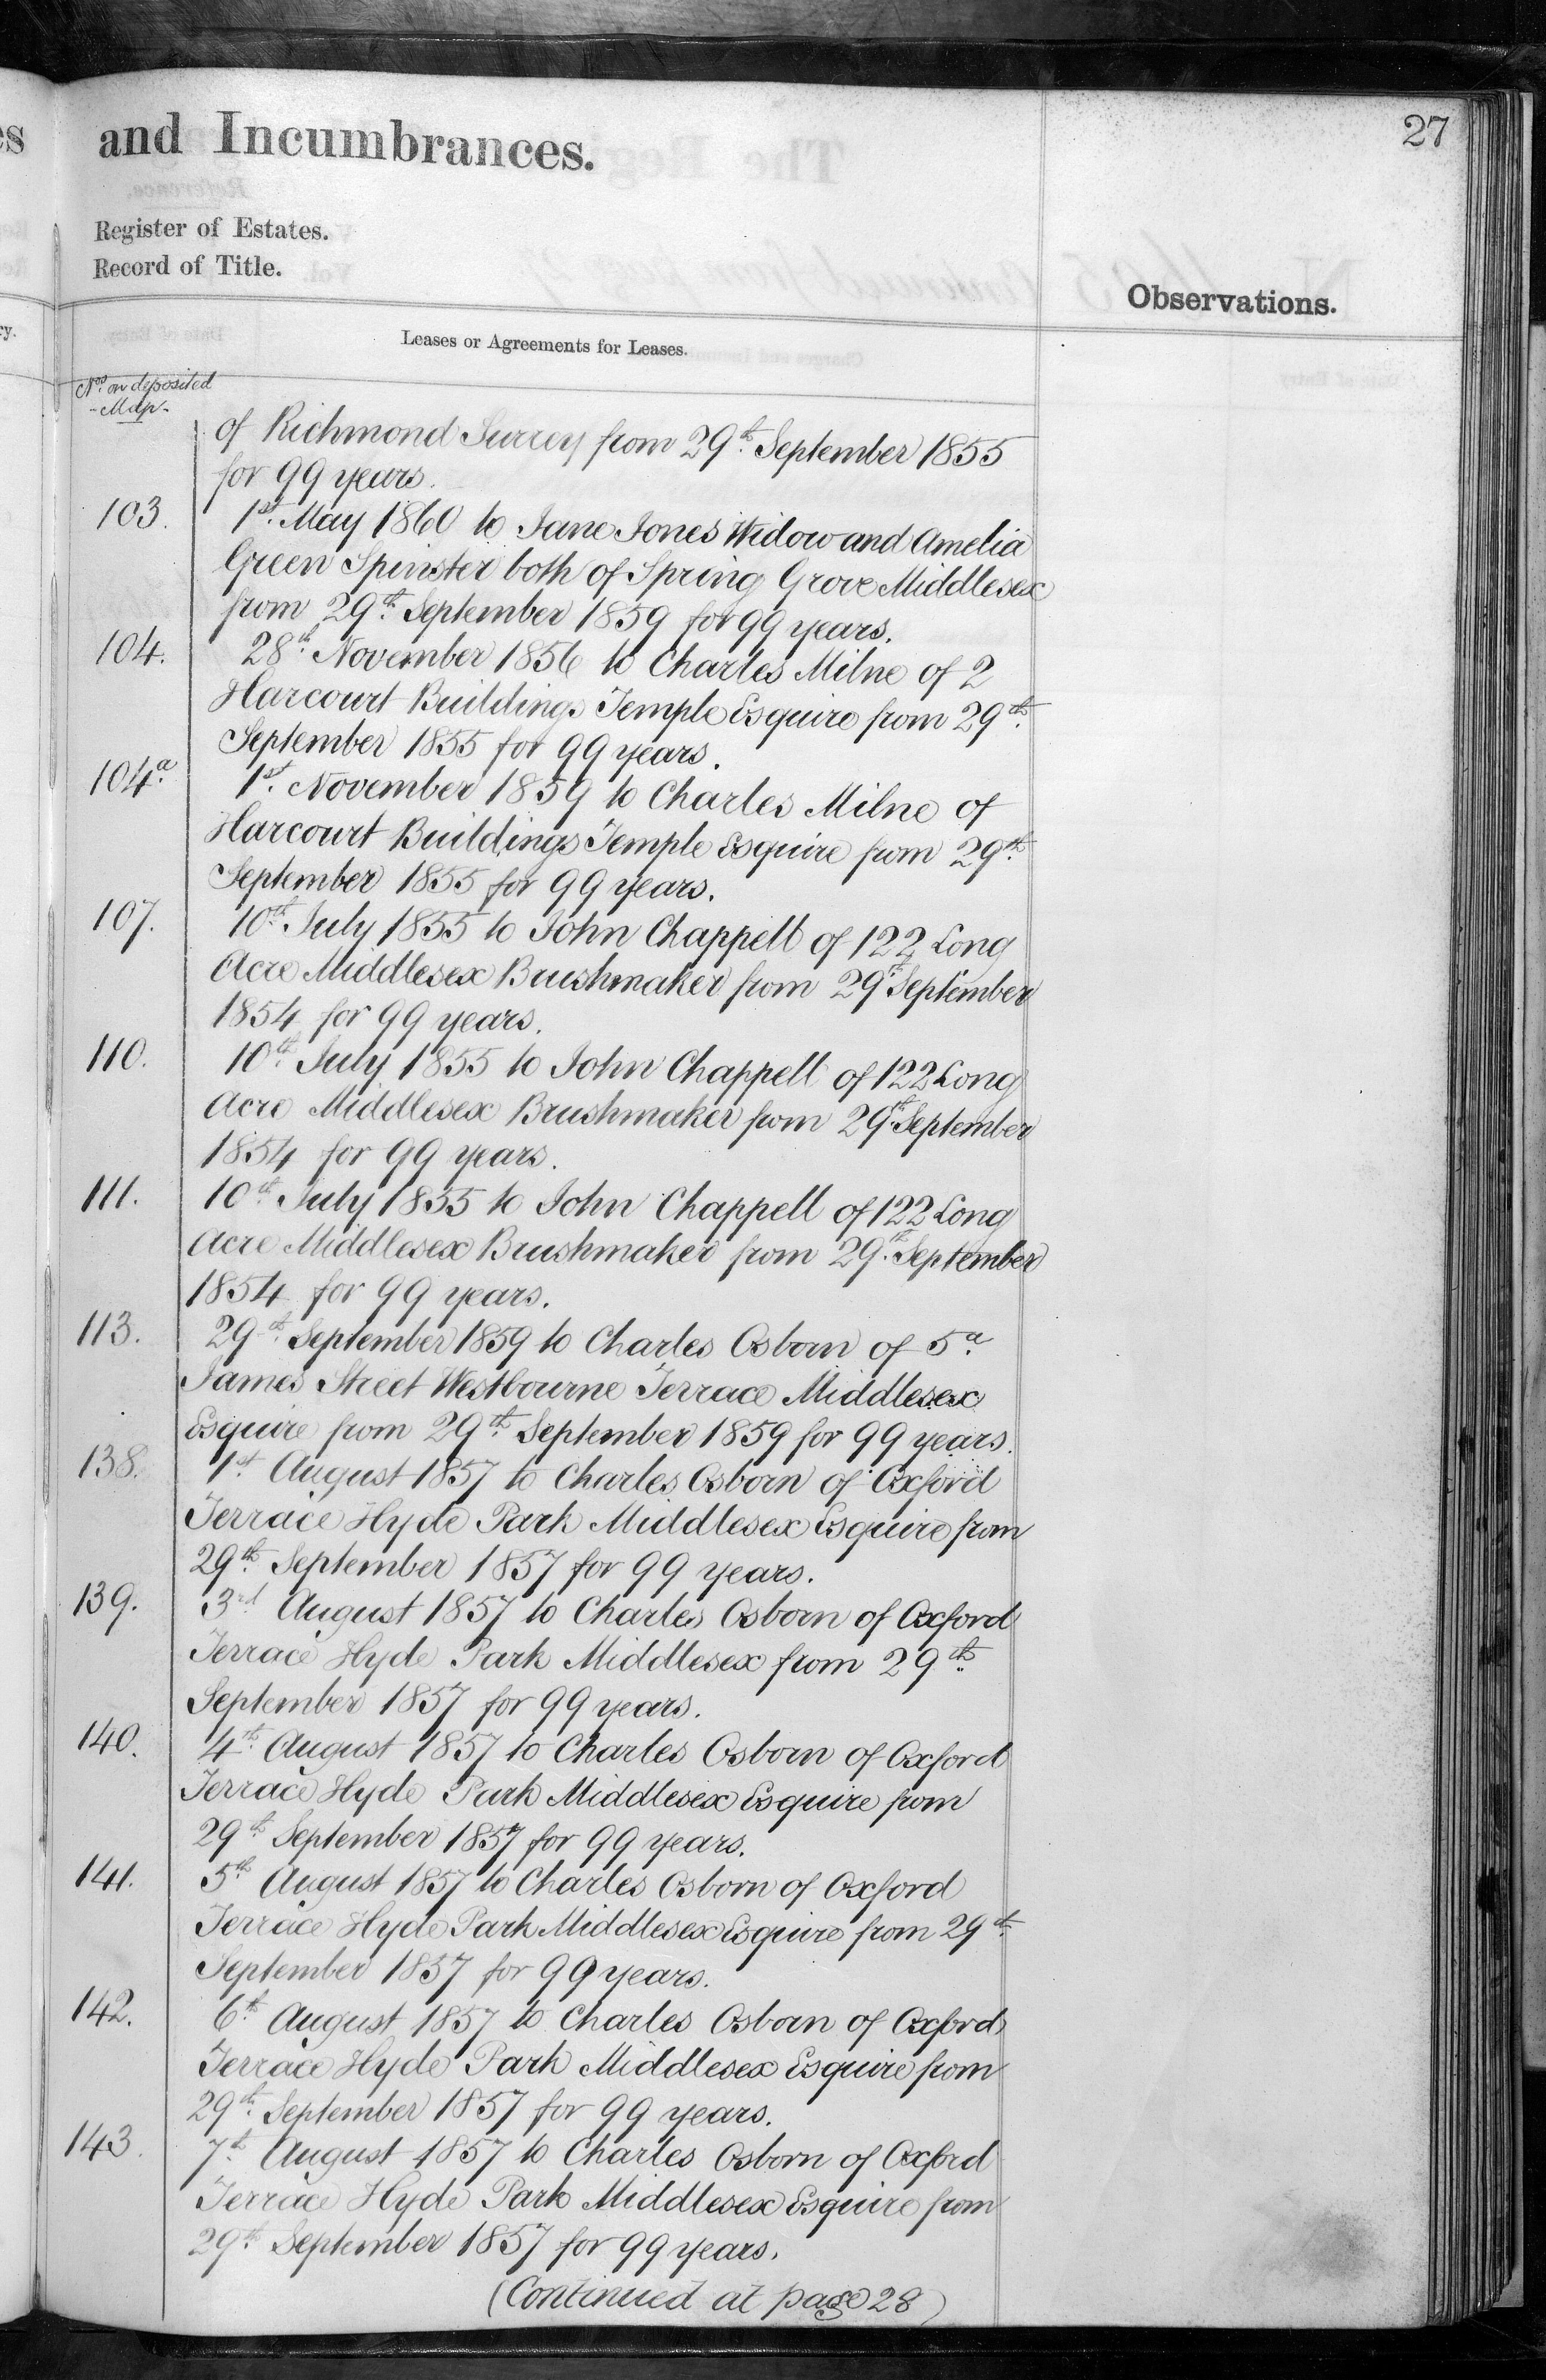 27
and Incumbrances.
Register of Estates.
Record of Title.
Observations.
Leases or Agreements for Leases.
Nos. on deposited
- Map -
of Richmond Surrey from 29th. September 1855
for 99 years.
103. 1st. May 1860 to Jane Jones Widow and Amelia
Green Spinster both of Spring Grove Middlesex
from 29th. September 1859 for 99 years.
104. 28th. November 1856 to Charles Milne of 2
Harcourt Buildings Temple Esquire from 29th.
September 1855 for 99 years.
104a. 1st. November 1859 to Charles Milne of
Harcourt Buildings Temple Esquire from 29th.
September 1855 for 99 years.
107. 10th. July 1855 to John Chappell of 122 Long
Acre Middlesex Brushmaker from 29th. September
1854 for 99 years.
110. 10th. July 1855 to John Chappell of 122 Long
Acre Middlesex Brushmaker from 29th. September
1854 for 99 years.
111. 10th. July 1855 to John Chappell of 122 Long
Acre Middlesex Brushmaker from 29th. September
1854 for 99 years.
113. 29th. September 1859 to Charles Osborn of 5a.
James Street Westbourne Terrace Middlesex
Esquire from 29th. September 1859 for 99 years.
138. 1st. August 1857 to Charles Osborn of Oxford
Terrace Hyde Park Middlesex Esquire from
29th. September 1857 for 99 years.
139. 3rd. August 1857 to Charles Osborn of Oxford
Terrace Hyde Park Middlesex from 29th.
September 1857 for 99 years.
140. 4th. August 1857 to Charles Osborn of Oxford
Terrace Hyde Park Middlesex Esquire from
29th. September 1857 for 99 years.
141. 5th. August 1857 to Charles Osborn of Oxford
Terrace Hyde Park Middlesex Esquire from 29th.
September 1857 for 99 years.
142. 6th. August 1857 to Charles Osborn of Oxford
Terrace Hyde Park Middlesex Esquire from
29th. September 1857 for 99 years.
143. 7th. August 1857 to Charles Osborn of Oxford
Terrace Hyde Park Middlesex Esquire from
29th. September 1857 for 99 years.
(Continued at page 28)